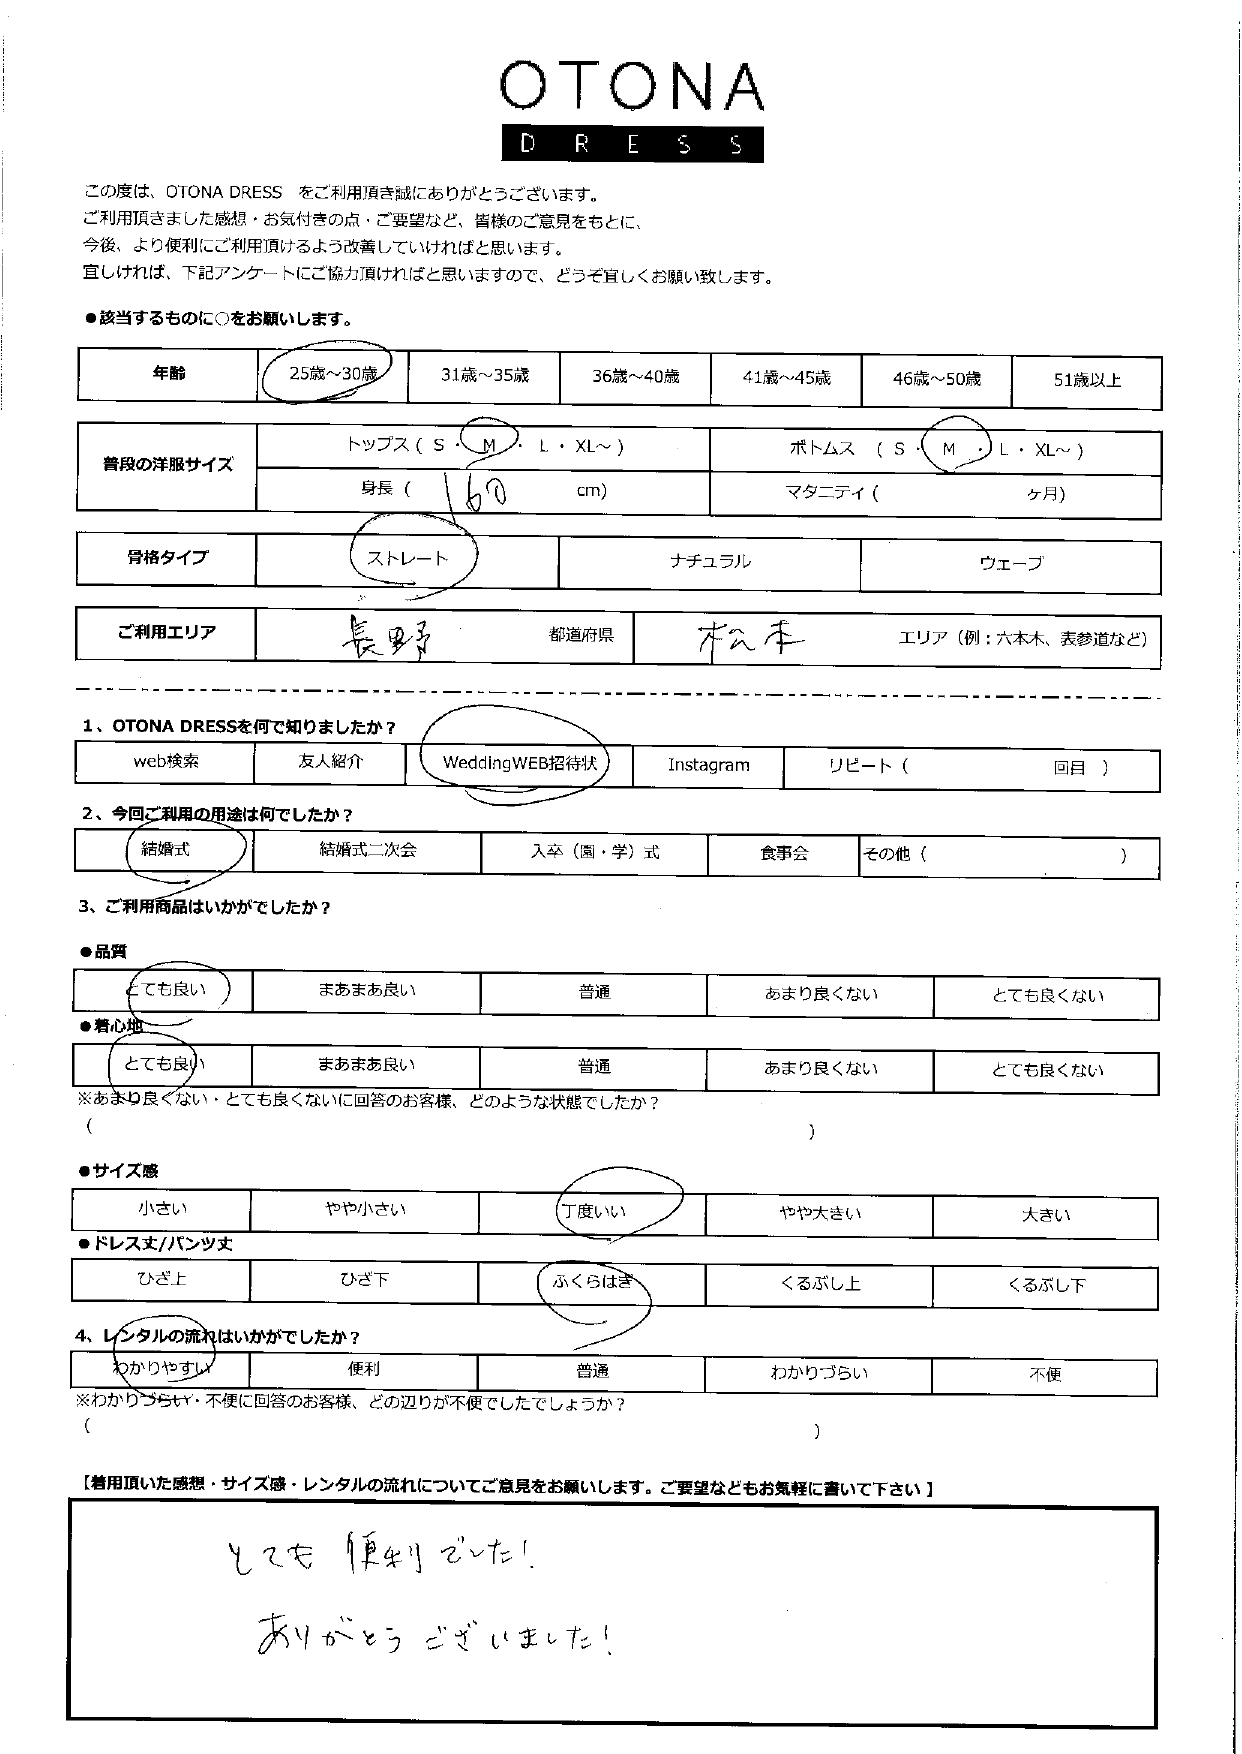 OTONA
DRESS
この度は、OTONA DRESS をご利用頂き誠にありがとうございます。
ご利用頂きました感想・お気付きの点・ご要望など、皆様のご意見をもとに、
今後、より便利にご利用頂けるよう改善していければと思います。
宜しければ、下記アンケートにご協力頂ければと思いますので、どうぞ宜しくお願い致します。
●該当するものに○をお願いします。
年齢 25歳～30歳 31歳～35歳 36歳～40歳 41歳～45歳 46歳～50歳 51歳以上
普段の洋服サイズ トップス ( S ・ M ・ L ・ XL～ ) ボトムス ( S ・ M ・ L ・ XL～ )
身長 ( 160 cm) マタニティ ( ケ月)
骨格タイプ ストレート ナチュラル ウェーブ
ご利用エリア 長野 都道府県 松本 エリア（例：六本木、表参道など）
1、OTONA DRESSを何で知りましたか？
web検索 友人紹介 WeddingWEB招待状 Instagram リピート ( 回目 )
2、今回ご利用の用途は何でしたか？
結婚式 結婚式二次会 入卒（園・学）式 食事会 その他 ( )
3、ご利用商品はいかがでしたか？
●品質
とても良い まあまあ良い 普通 あまり良くない とても良くない
●着心地
とても良い まあまあ良い 普通 あまり良くない とても良くない
※あまり良くない・とても良くないに回答のお客様、どのような状態でしたか？
( )
●サイズ感
小さい やや小さい 丁度いい やや大きい 大きい
●ドレス丈/パンツ丈
ひざ上 ひざ下 ふくらはぎ くるぶし上 くるぶし下
4、レンタルの流れはいかがでしたか？
わかりやすい 便利 普通 わかりづらい 不便
※わかりづらい・不便に回答のお客様、どの辺りが不便でしたでしょうか？
( )
【着用頂いた感想・サイズ感・レンタルの流れについてご意見をお願いします。ご要望などもお気軽に書いて下さい】
とても便利でした！
ありがとうございました！